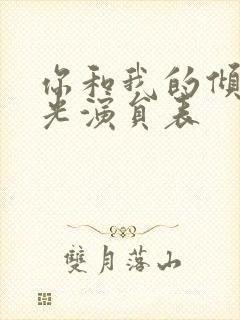 你和我的倾
光演员表
雙月落山